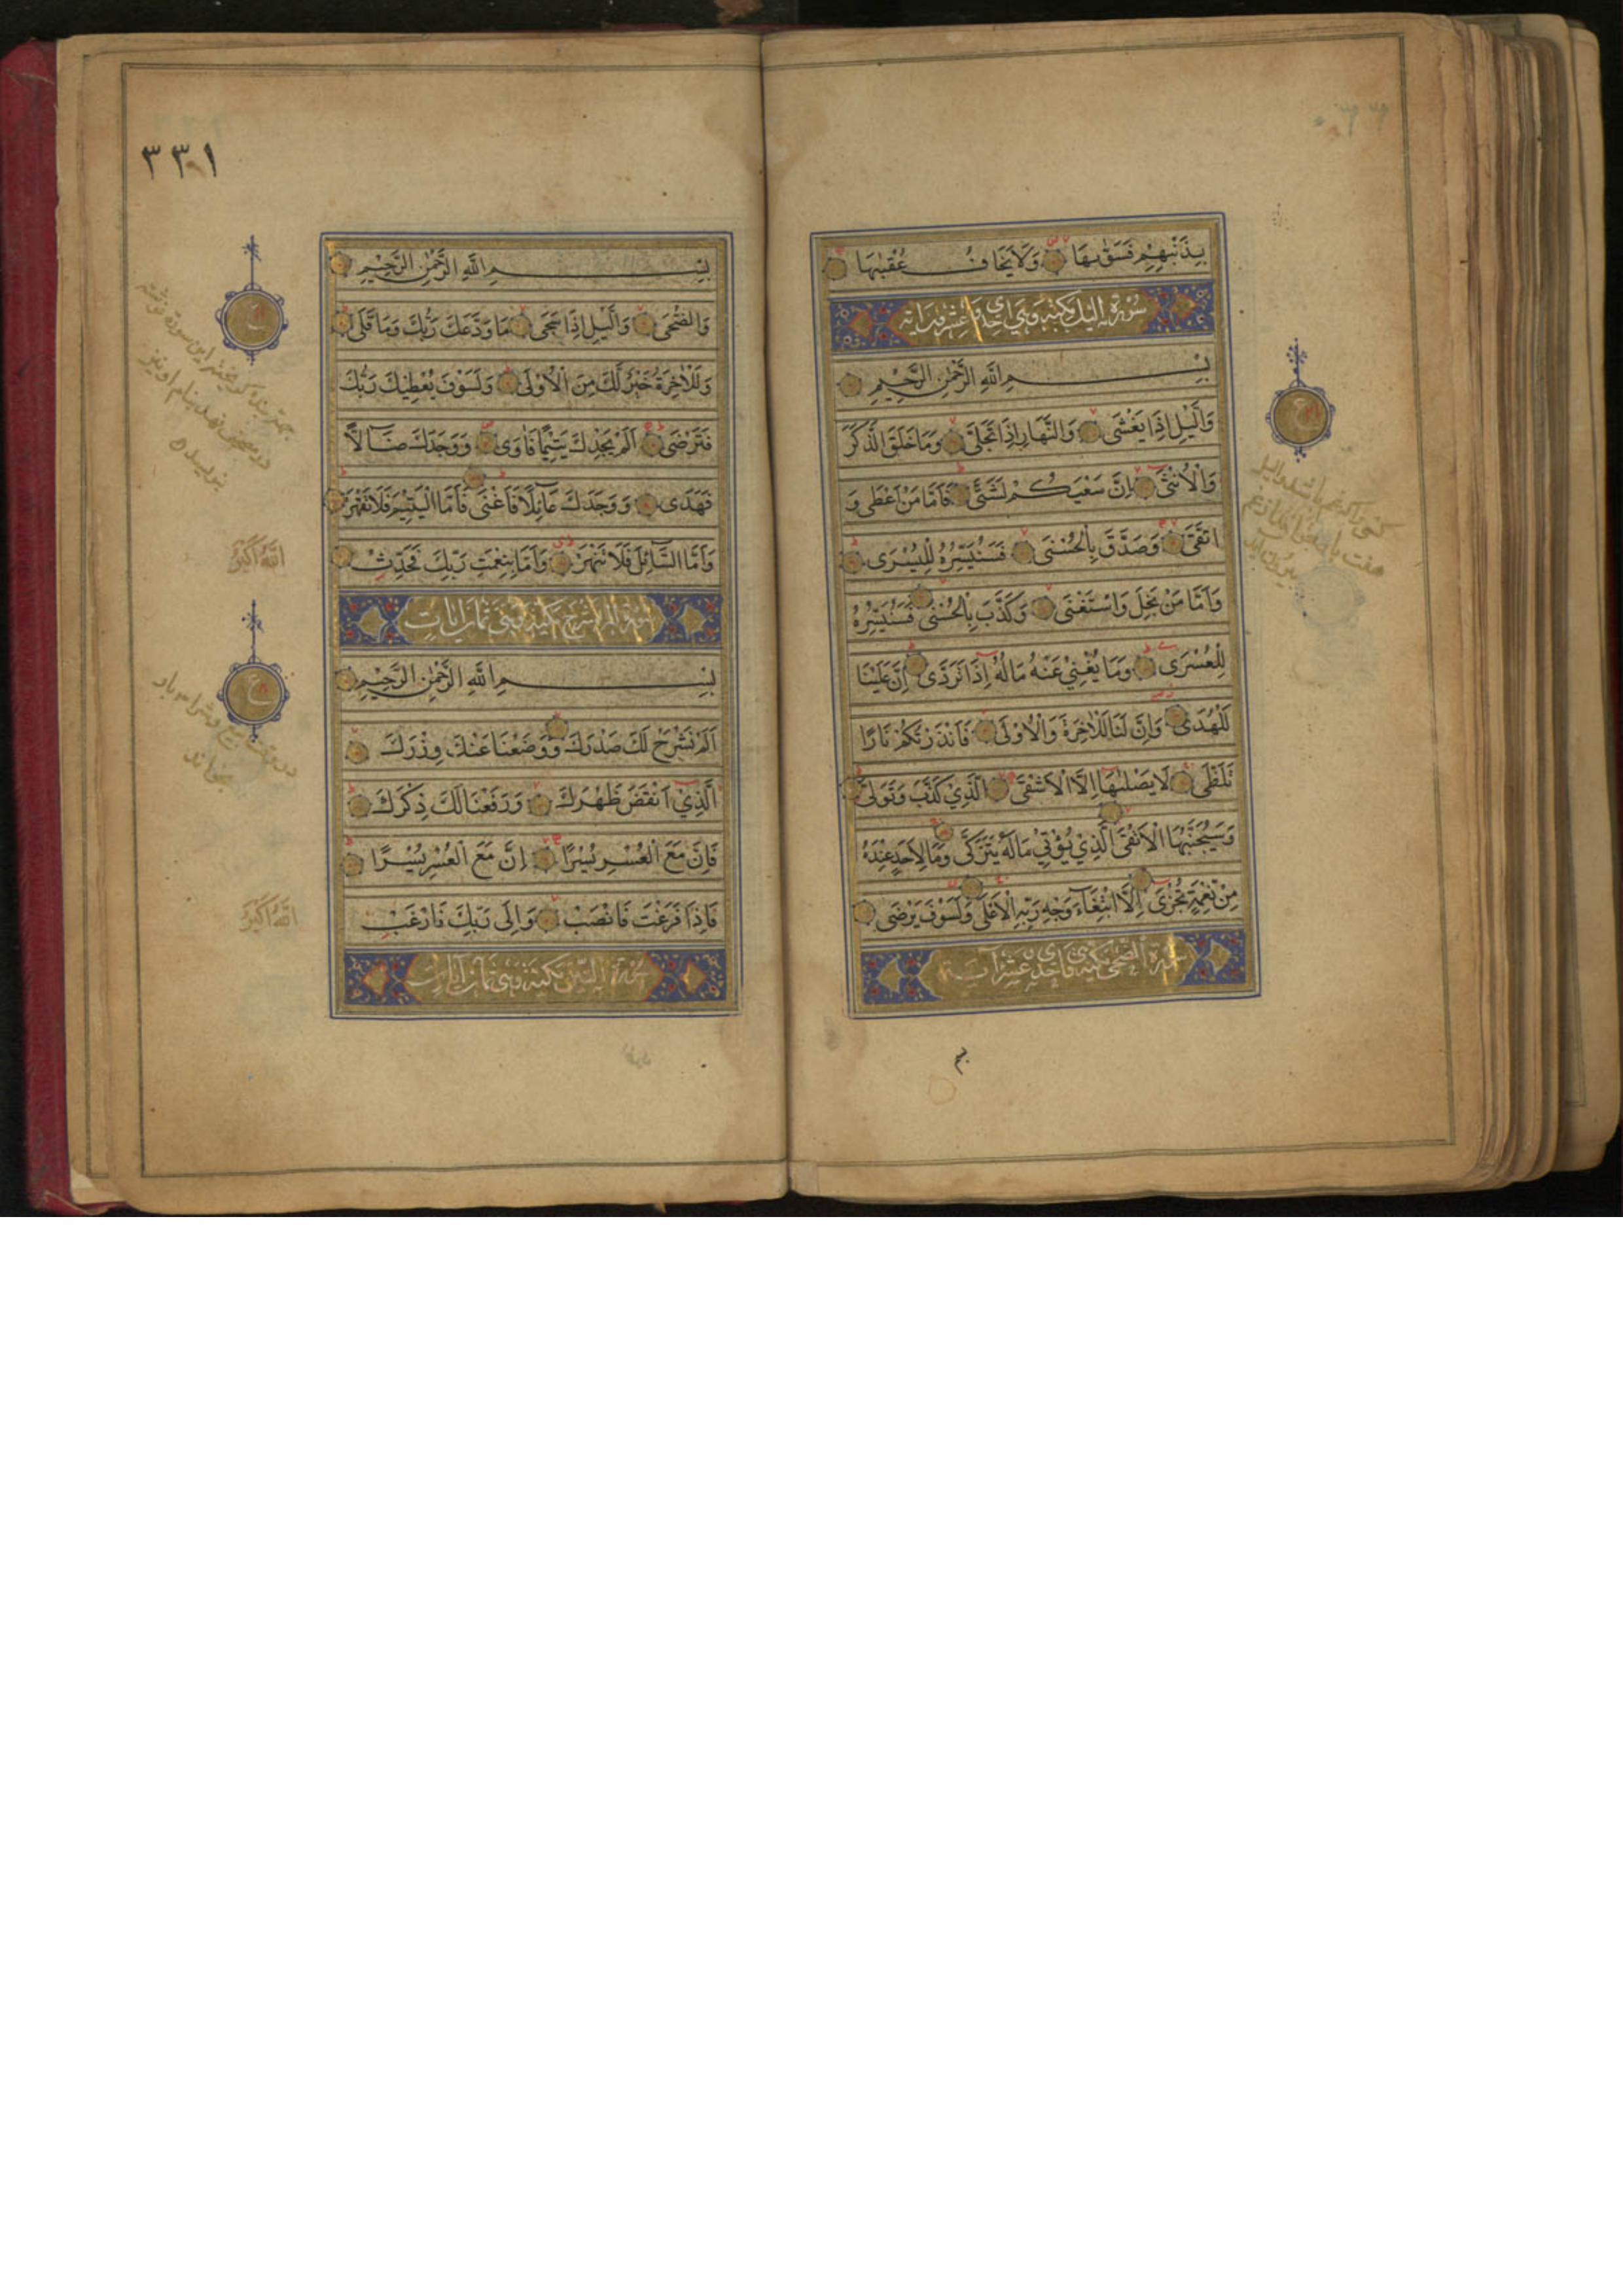 بِذَنْبِهِمْ فَسَوّٰىهَا وَلَا يَخَافُ عُقْبٰهَا
سورة اليل مكية وهي احدى وعشرون اية
بِسْمِ اللّٰهِ الرَّحْمٰنِ الرَّحِيْمِ
وَالَّيْلِ اِذَا يَغْشٰى وَالنَّهَارِ اِذَا تَجَلّٰى وَمَا خَلَقَ الذَّكَرَ
وَالْاُنْثٰى اِنَّ سَعْيَكُمْ لَشَتّٰى فَاَمَّا مَنْ اَعْطٰى وَ
اتَّقٰى وَصَدَّقَ بِالْحُسْنٰى فَسَنُيَسِّرُهُ لِلْيُسْرٰى
وَاَمَّا مَنْ بَخِلَ وَاسْتَغْنٰى وَكَذَّبَ بِالْحُسْنٰى فَسَنُيَسِّرُهُ
لِلْعُسْرٰى وَمَا يُغْنِيْ عَنْهُ مَالُهُ اِذَا تَرَدّٰى اِنَّ عَلَيْنَا
لَلْهُدٰى وَاِنَّ لَنَا لَلْاٰخِرَةَ وَالْاُوْلٰى فَاَنْذَرْتُكُمْ نَارًا
تَلَظّٰى لَا يَصْلٰىهَا اِلَّا الْاَشْقٰى الَّذِيْ كَذَّبَ وَتَوَلّٰى
وَسَيُجَنَّبُهَا الْاَتْقٰى الَّذِيْ يُؤْتِيْ مَالَهُ يَتَزَكّٰى وَمَا لِاَحَدٍ عِنْدَهُ
مِنْ نِعْمَةٍ تُجْزٰى اِلَّا ابْتِغَآءَ وَجْهِ رَبِّهِ الْاَعْلٰى وَلَسَوْفَ يَرْضٰى
سورة الضحى مكية وهي احدى عشر اية
٣٣١
بِسْمِ اللّٰهِ الرَّحْمٰنِ الرَّحِيْمِ
وَالضُّحٰى وَالَّيْلِ اِذَا سَجٰى مَا وَدَّعَكَ رَبُّكَ وَمَا قَلٰى
وَلَلْاٰخِرَةُ خَيْرٌ لَكَ مِنَ الْاُوْلٰى وَلَسَوْفَ يُعْطِيْكَ رَبُّكَ
فَتَرْضٰى اَلَمْ يَجِدْكَ يَتِيْمًا فَاٰوٰى وَوَجَدَكَ ضَآلًّا
فَهَدٰى وَوَجَدَكَ عَآئِلًا فَاَغْنٰى فَاَمَّا الْيَتِيْمَ فَلَا تَقْهَرْ
وَاَمَّا السَّآئِلَ فَلَا تَنْهَرْ وَاَمَّا بِنِعْمَتِ رَبِّكَ فَحَدِّثْ
سورة الم نشرح مكية وهي ثمان ايات
بِسْمِ اللّٰهِ الرَّحْمٰنِ الرَّحِيْمِ
اَلَمْ نَشْرَحْ لَكَ صَدْرَكَ وَوَضَعْنَا عَنْكَ وِزْرَكَ
الَّذِيْ اَنْقَضَ ظَهْرَكَ وَرَفَعْنَا لَكَ ذِكْرَكَ
فَاِنَّ مَعَ الْعُسْرِ يُسْرًا اِنَّ مَعَ الْعُسْرِ يُسْرًا
فَاِذَا فَرَغْتَ فَانْصَبْ وَاِلٰى رَبِّكَ فَارْغَبْ
سورة التين مكية وهي ثمان ايات
الله اكبر
الله اكبر